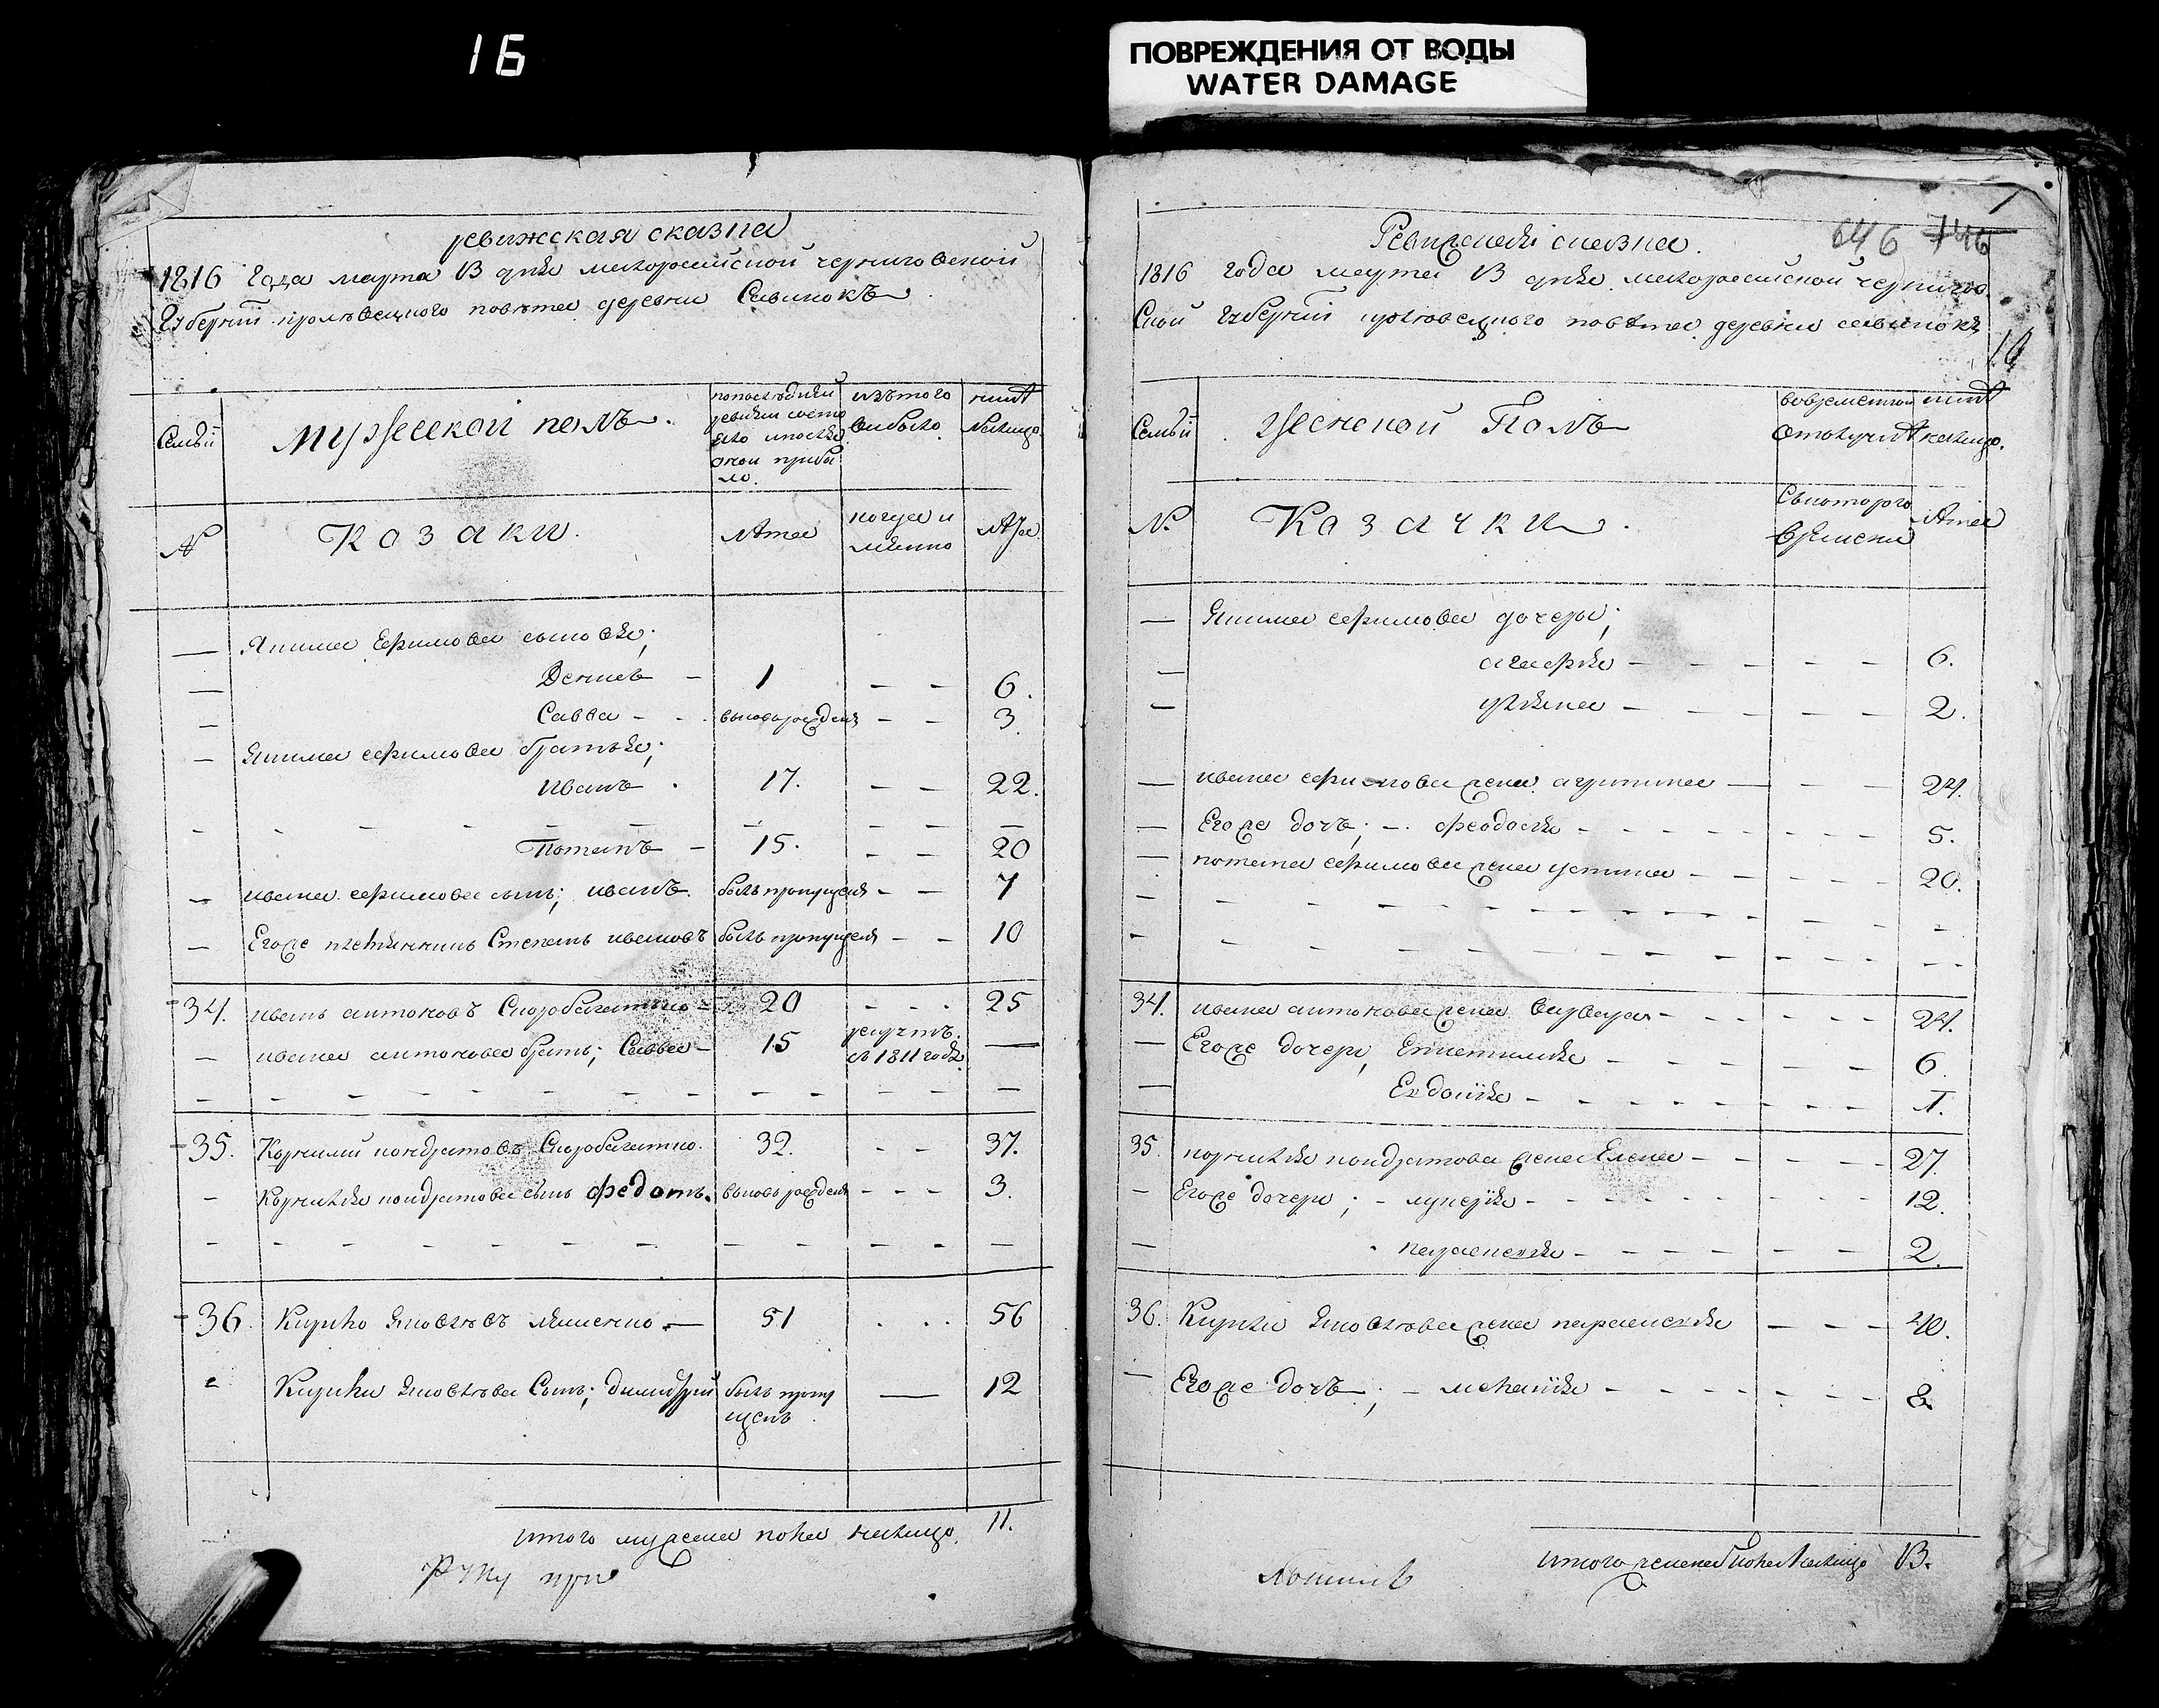 16
ПОВРЕЖДЕНИЯ ОТ ВОДЫ
WATER DAMAGE
ревижская сказка
1816 Года марта 13 дня малороссийской черниговской
Губернии кролевецкого повета деревни Савинокъ
Семьи
Мужеской полъ.
по последней ревизии состо яло и после оной прибы ло.
изътого выбыло
ныне налицо
№
Козаки.
лета
когда и имянно
лета
— Якима Ефимова сыновья;
— Денисъ — 1 — — 6.
— Савва — вновь рожденъ — — 3.
— Якима ефимова братья;
иванъ . 17. — — 22.
Потапъ — 15. — — 20
— ивана ефимова сынъ; иванъ. былъ пропущенъ — — 7
— Егоже племянникъ Степанъ ивановъ былъ пропущенъ — — 10
34. иванъ антоновъ Скоробагатко — 20 — — 25
— ивана антонова братъ; Савва — 15 в 1811 годе —
35. Корнилий кондратовъ Скоробагатко. 32. — — 37.
— Корнилия кондратова сынъ федотъ. вновь рожденъ — — 3.
36. Кирило Яковлевъ — 51 . . . 56
Кирила Яковлева Сынъ; димитрий былъ пропу щенъ — 12
итого мужеска пола налицо. 11.
Ревижская сказка.
646 746
1816 года марта 13 дня малороссийской чернигов
Ской Губернии кролевецкого повета деревни савинокъ
16
Семьи
Женской Полъ
вовременной отлучке
ныне налицо.
№
Козачки.
Скоторого времени
лета
— Якима ефимова дочери;
— агафия — — — — — 6.
— уляна — — — — — 2.
— ивана ефимова жена агрипина — — — 24.
— Егоже дочь; — феодосия — — — — — 5.
— потапа ефимова жена устина — — — — 20.
34. ивана антонова жена варвара — — — — 24.
— Егоже дочери, — — — — 6.
— Евдокия — — — — — 1.
35. корнилия кондратова жена Елена — — — — 27.
— Егоже дочери; — лукерия — — — — — 12.
— параскевия — — — — — 2.
36. Кирила Яковлева жена параскевия — — — 40.
— Егоже дочь; — мелания — — — — — 8.
итого женска пола налицо 13.